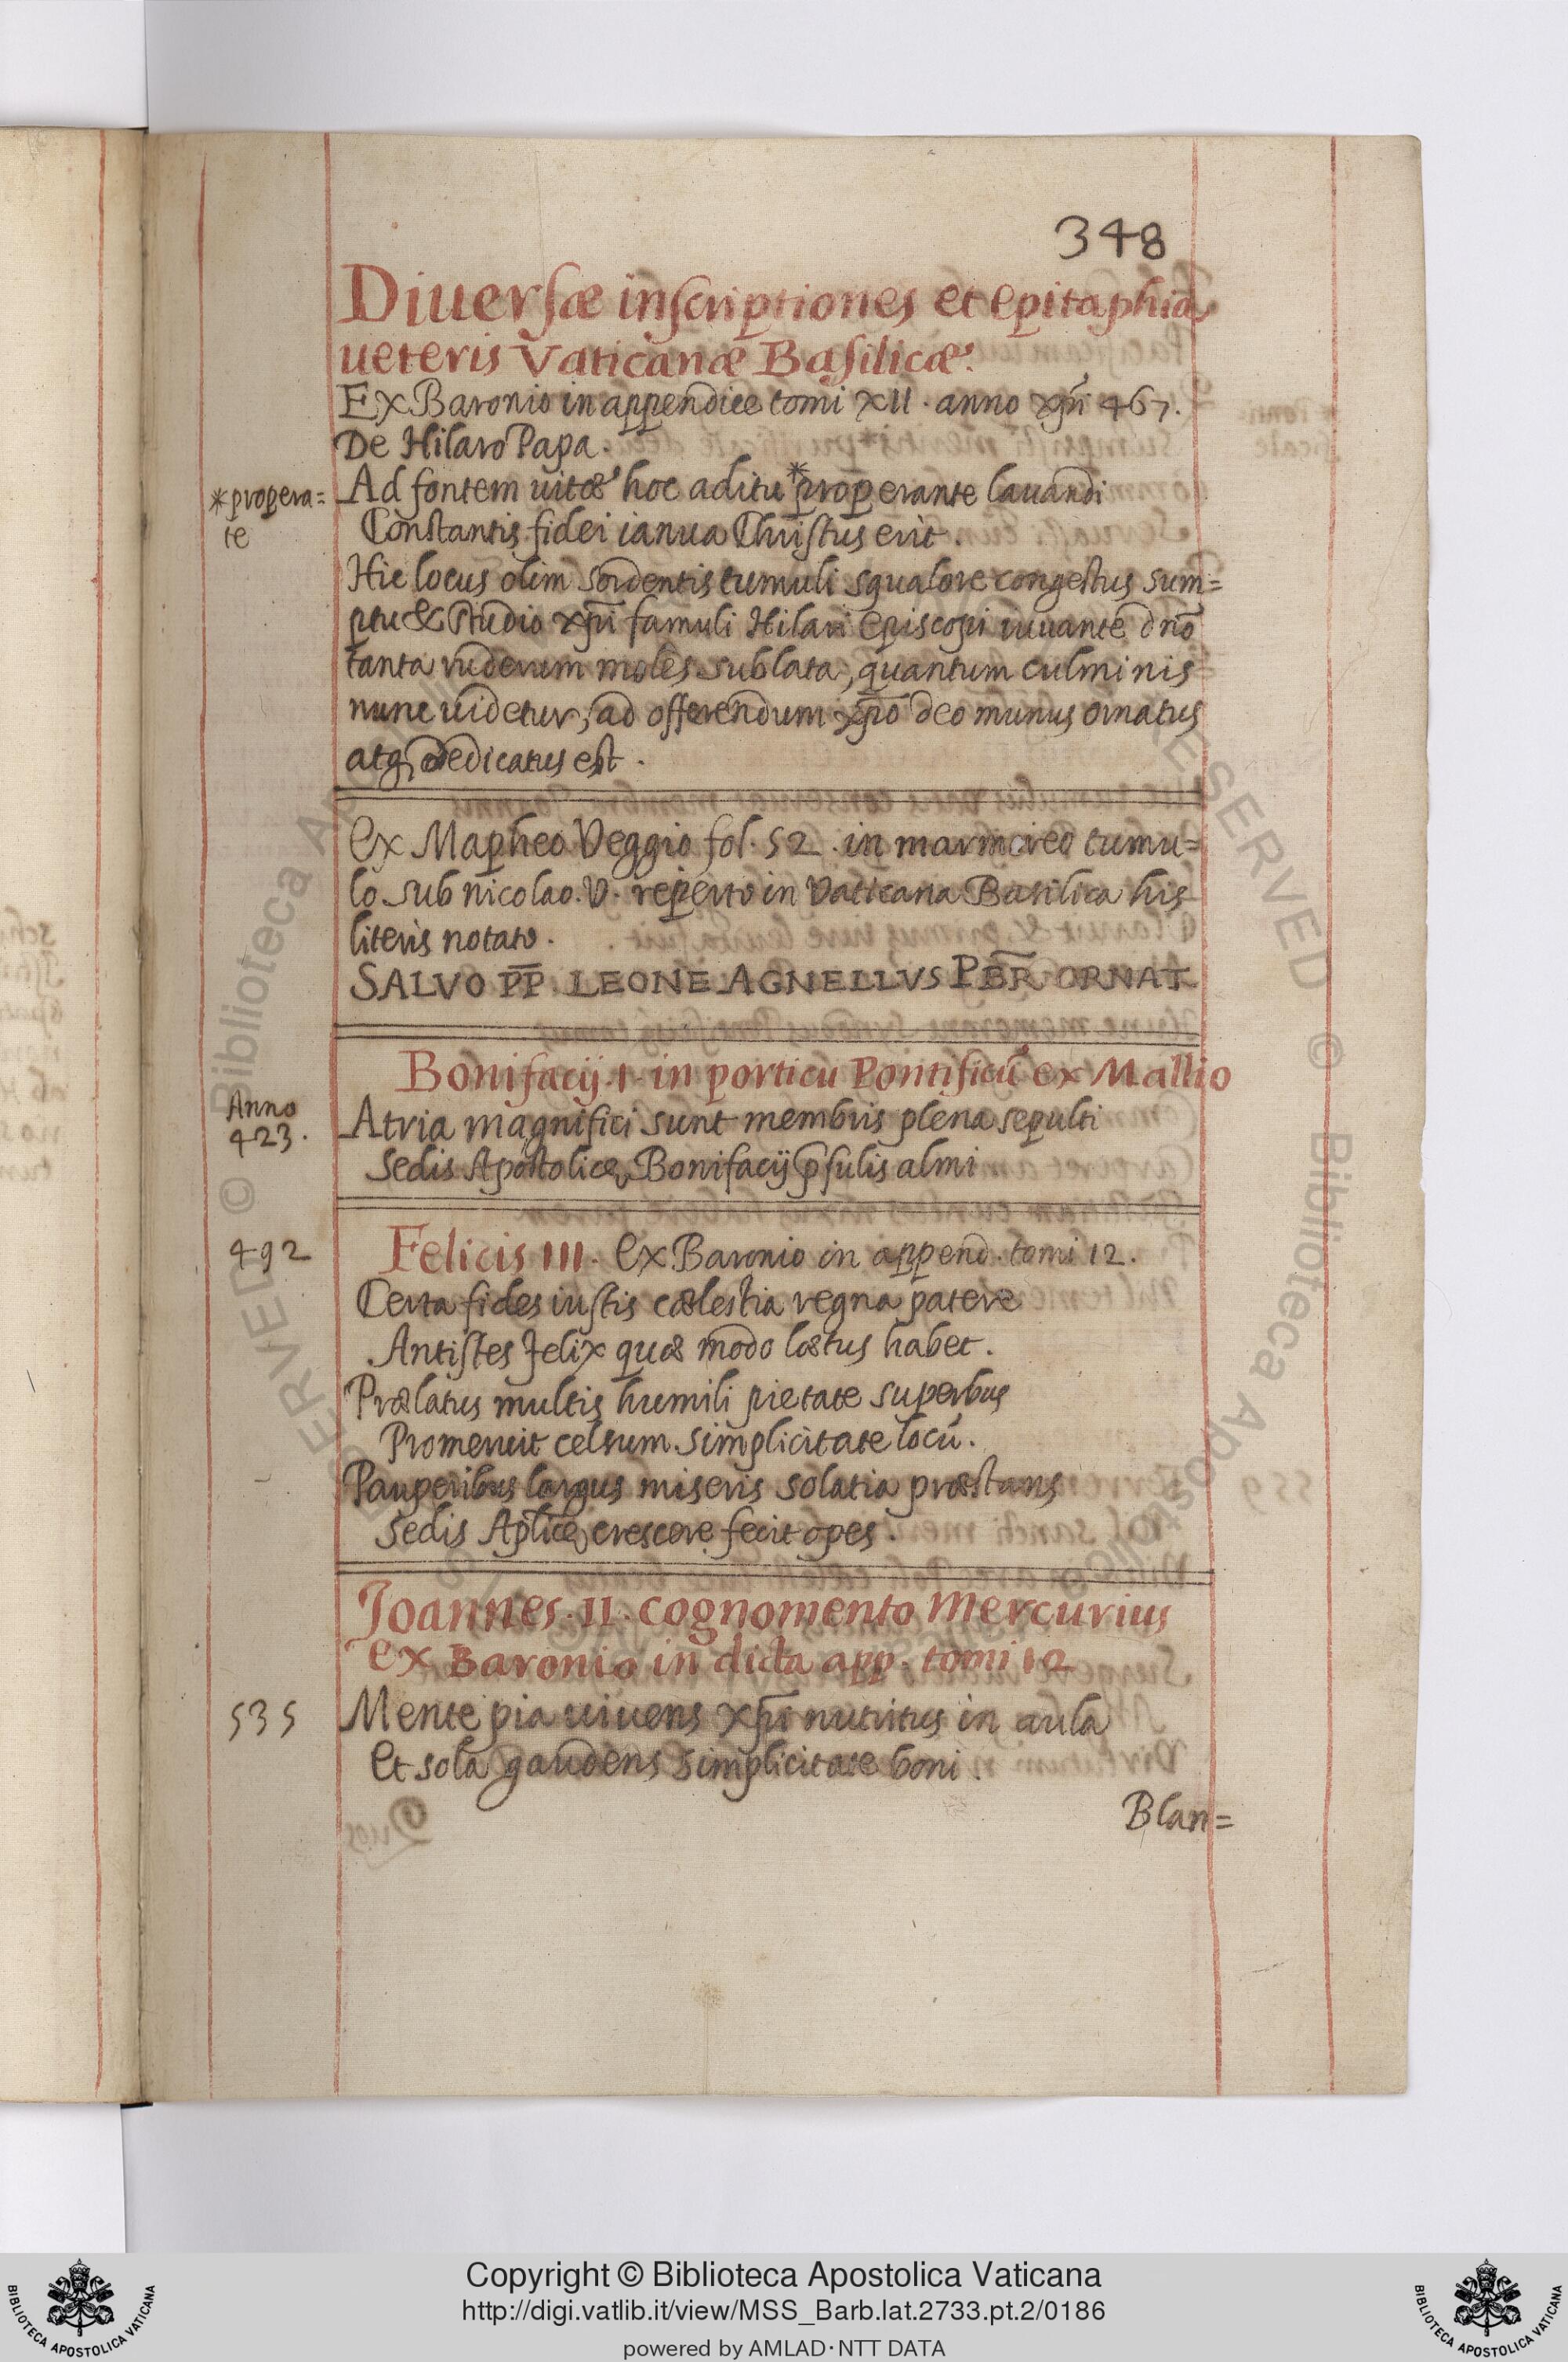 348
Diuersæ inscriptiones et epitaphia
ueteris Vaticanæ Basilicæ.
Ex Baronio in appendice tomi XII. anno xp̄i 467.
De Hilaro Papa.
Ad fontem uitæ hoc aditu *properante lauandi
*propera=
te
Constantis fidei ianua Christus erit.
Hic locus olim sordentis tumuli squalore congestus sum=
ptu & studio xp̄i famuli Hilari Episcopi iuuante dn̄o
tanta ruderum moles sublata, quantum culminis
nunc uidetur, ad offerendum xp̄o deo munus ornatus
atq; dedicatus est.
Ex Mapheo Veggio fol. 52. in marmoreo tumu=
lo sub nicolao. V. reperto in Vaticana Basilica his
literis notato.
SALVO P̄P̄ LEONE AGNELLVS PB̄R ORNAT
Bonifacij. I. in porticu Pontificū ex Mallio
Anno
423.
Atria magnifici sunt membris plena sepulti
Sedis Apostolicę Bonifacij p̄sulis almi
492
Felicis III. Ex Baronio in append. tomi 12.
Certa fides iustis cælestia regna patere
Antistes Felix quæ modo lætus habet.
Prælatus multis humili pietate superbus
Promeruit celsum simplicitate locū.
Pauperibus largus miseris solatia præstans
Sedis Aplicę crescere fecit opes.
Joannes. II. cognomento Mercurius
ex Baronio in dicta app. tomi 12
535
Mente pia uiuens xp̄i nutritus in aula
Et sola gaudens simplicitate boni.
Blan=
Copyright © Biblioteca Apostolica Vaticana
http://digi.vatlib.it/view/MSS_Barb.lat.2733.pt.2/0186
powered by AMLAD · NTT DATA
BIBLIOTECA APOSTOLICA VATICANA
BIBLIOTECA APOSTOLICA VATICANA